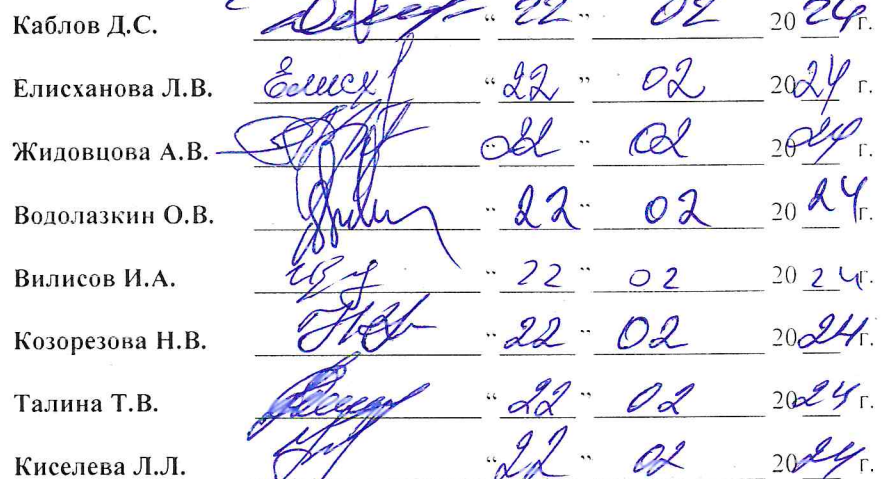 Каблов Д.С. “ 22 ” 02 20 24 г.
Елисханова Л.В. Елисх “ 22 ” 02 20 24 г.
Жидовцова А.В. “ 22 ” 02 20 24 г.
Водолазкин О.В. “ 22 ” 02 20 24 г.
Вилисов И.А. “ 22 ” 02 20 24 г.
Козорезова Н.В. “ 22 ” 02 20 24 г.
Талина Т.В. “ 22 ” 02 20 24 г.
Киселева Л.Л. “ 22 ” 02 20 24 г.